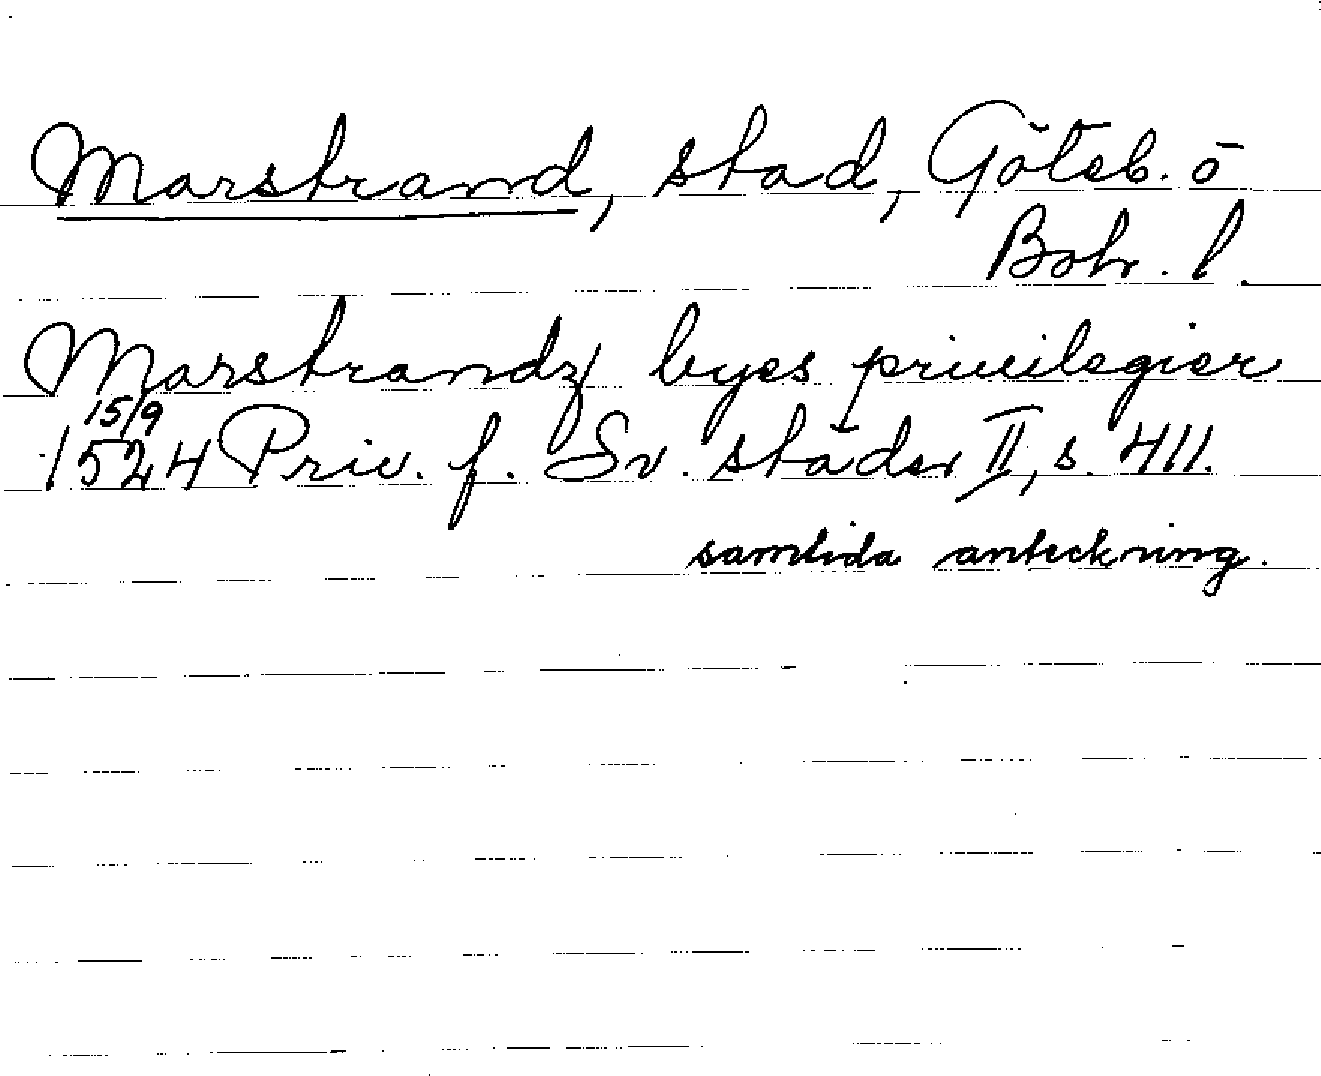 Marstrand, stad, Göteb. o
Boh. l.
Marstrandz byes priuilegier
15/9
1524 Priv. f. Sv. städer II, s. 411.
samtida anteckning.